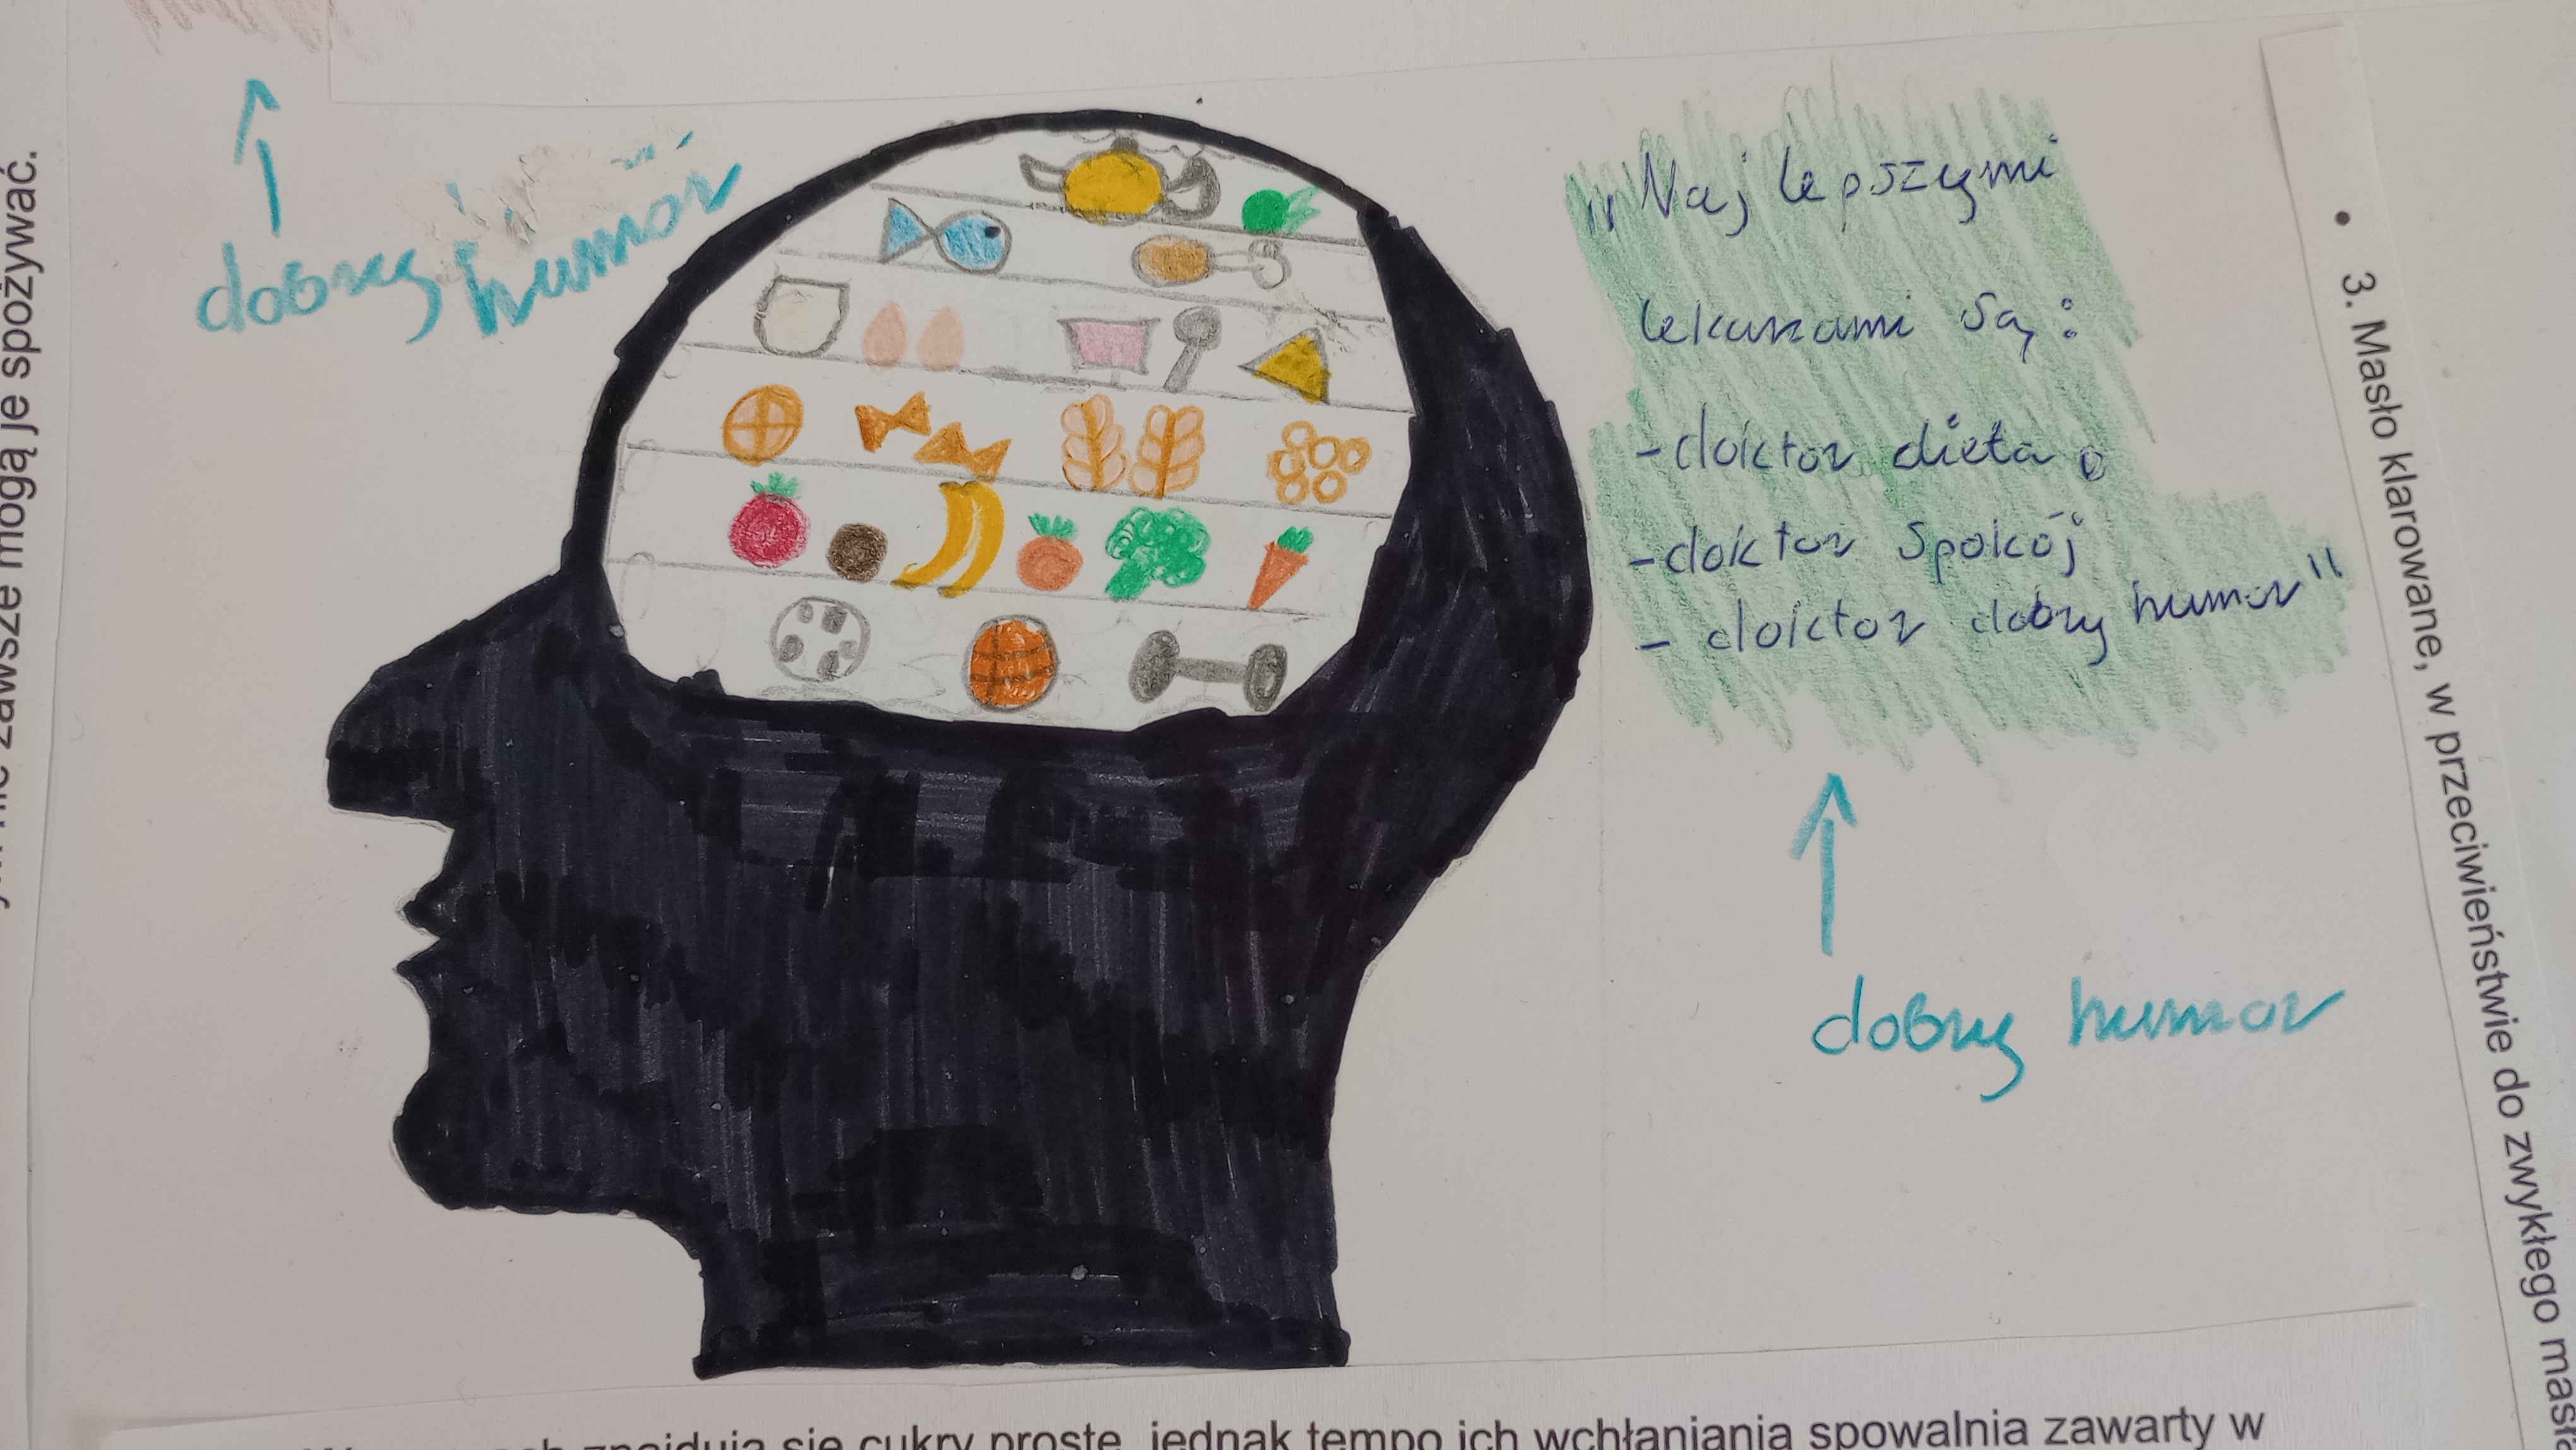 dobry humor
„Najlepszymi
lekarzami są:
- doktor dieta
- doktor spokój
- doktor dobry humor"
dobry humor
zawsze mogą je spożywać.
• 3. Masło klarowane, w przeciwieństwie do zwykłego
znajdują się cukry proste, jednak tempo ich wchłaniania spowalnia zawarty w